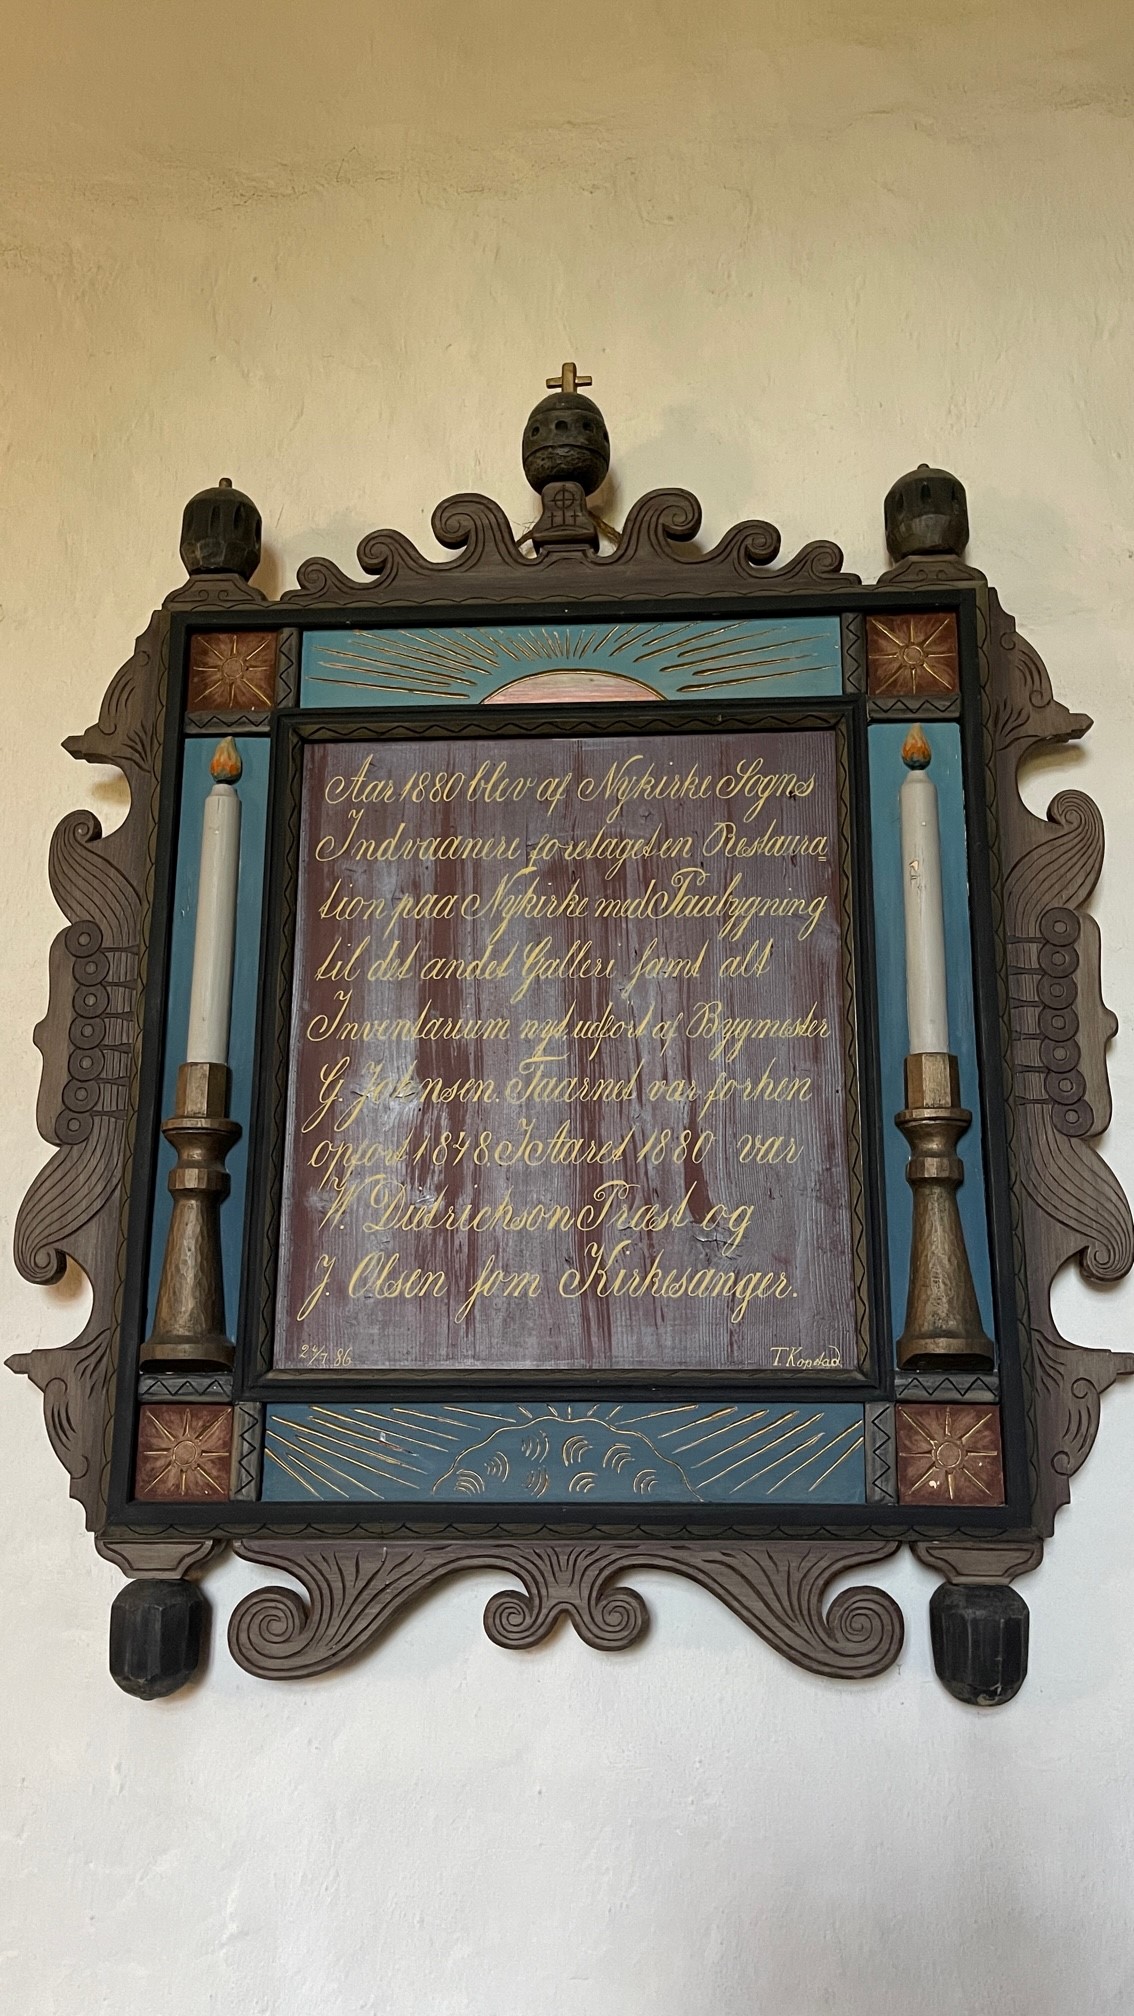 Aar 1880 blev af Nykirke Sogns
Indvaanere foretaget en Restaura=
tion paa Nykirke med Paabygning
til det andet Galleri samt alt
Inventarium nyt, udført af Bygmester
G. Johnsen. Taarnet var forhen
opført 1848. I Aaret 1880 var
W. Dietrichson Præst og
J. Olsen som Kirkesanger.
24/7 86
T Kopstad